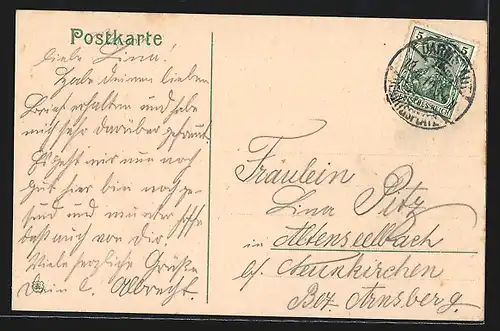 Postkarte
Liebe Lina!
Habe deinen lieben
Brief erhalten und habe
mich sehr darüber gefreut.
Es geht mir nur noch
gut hier bin noch ge-
sund und munter hoffe
daß auch von Dir.
Viele herzliche Grüße
Dein l. Albrecht.
5 5
DARMSTADT
Fräulein
Lina Pitz
in Altenseelbach
b/ Neunkirchen
Bez. Arnsberg.